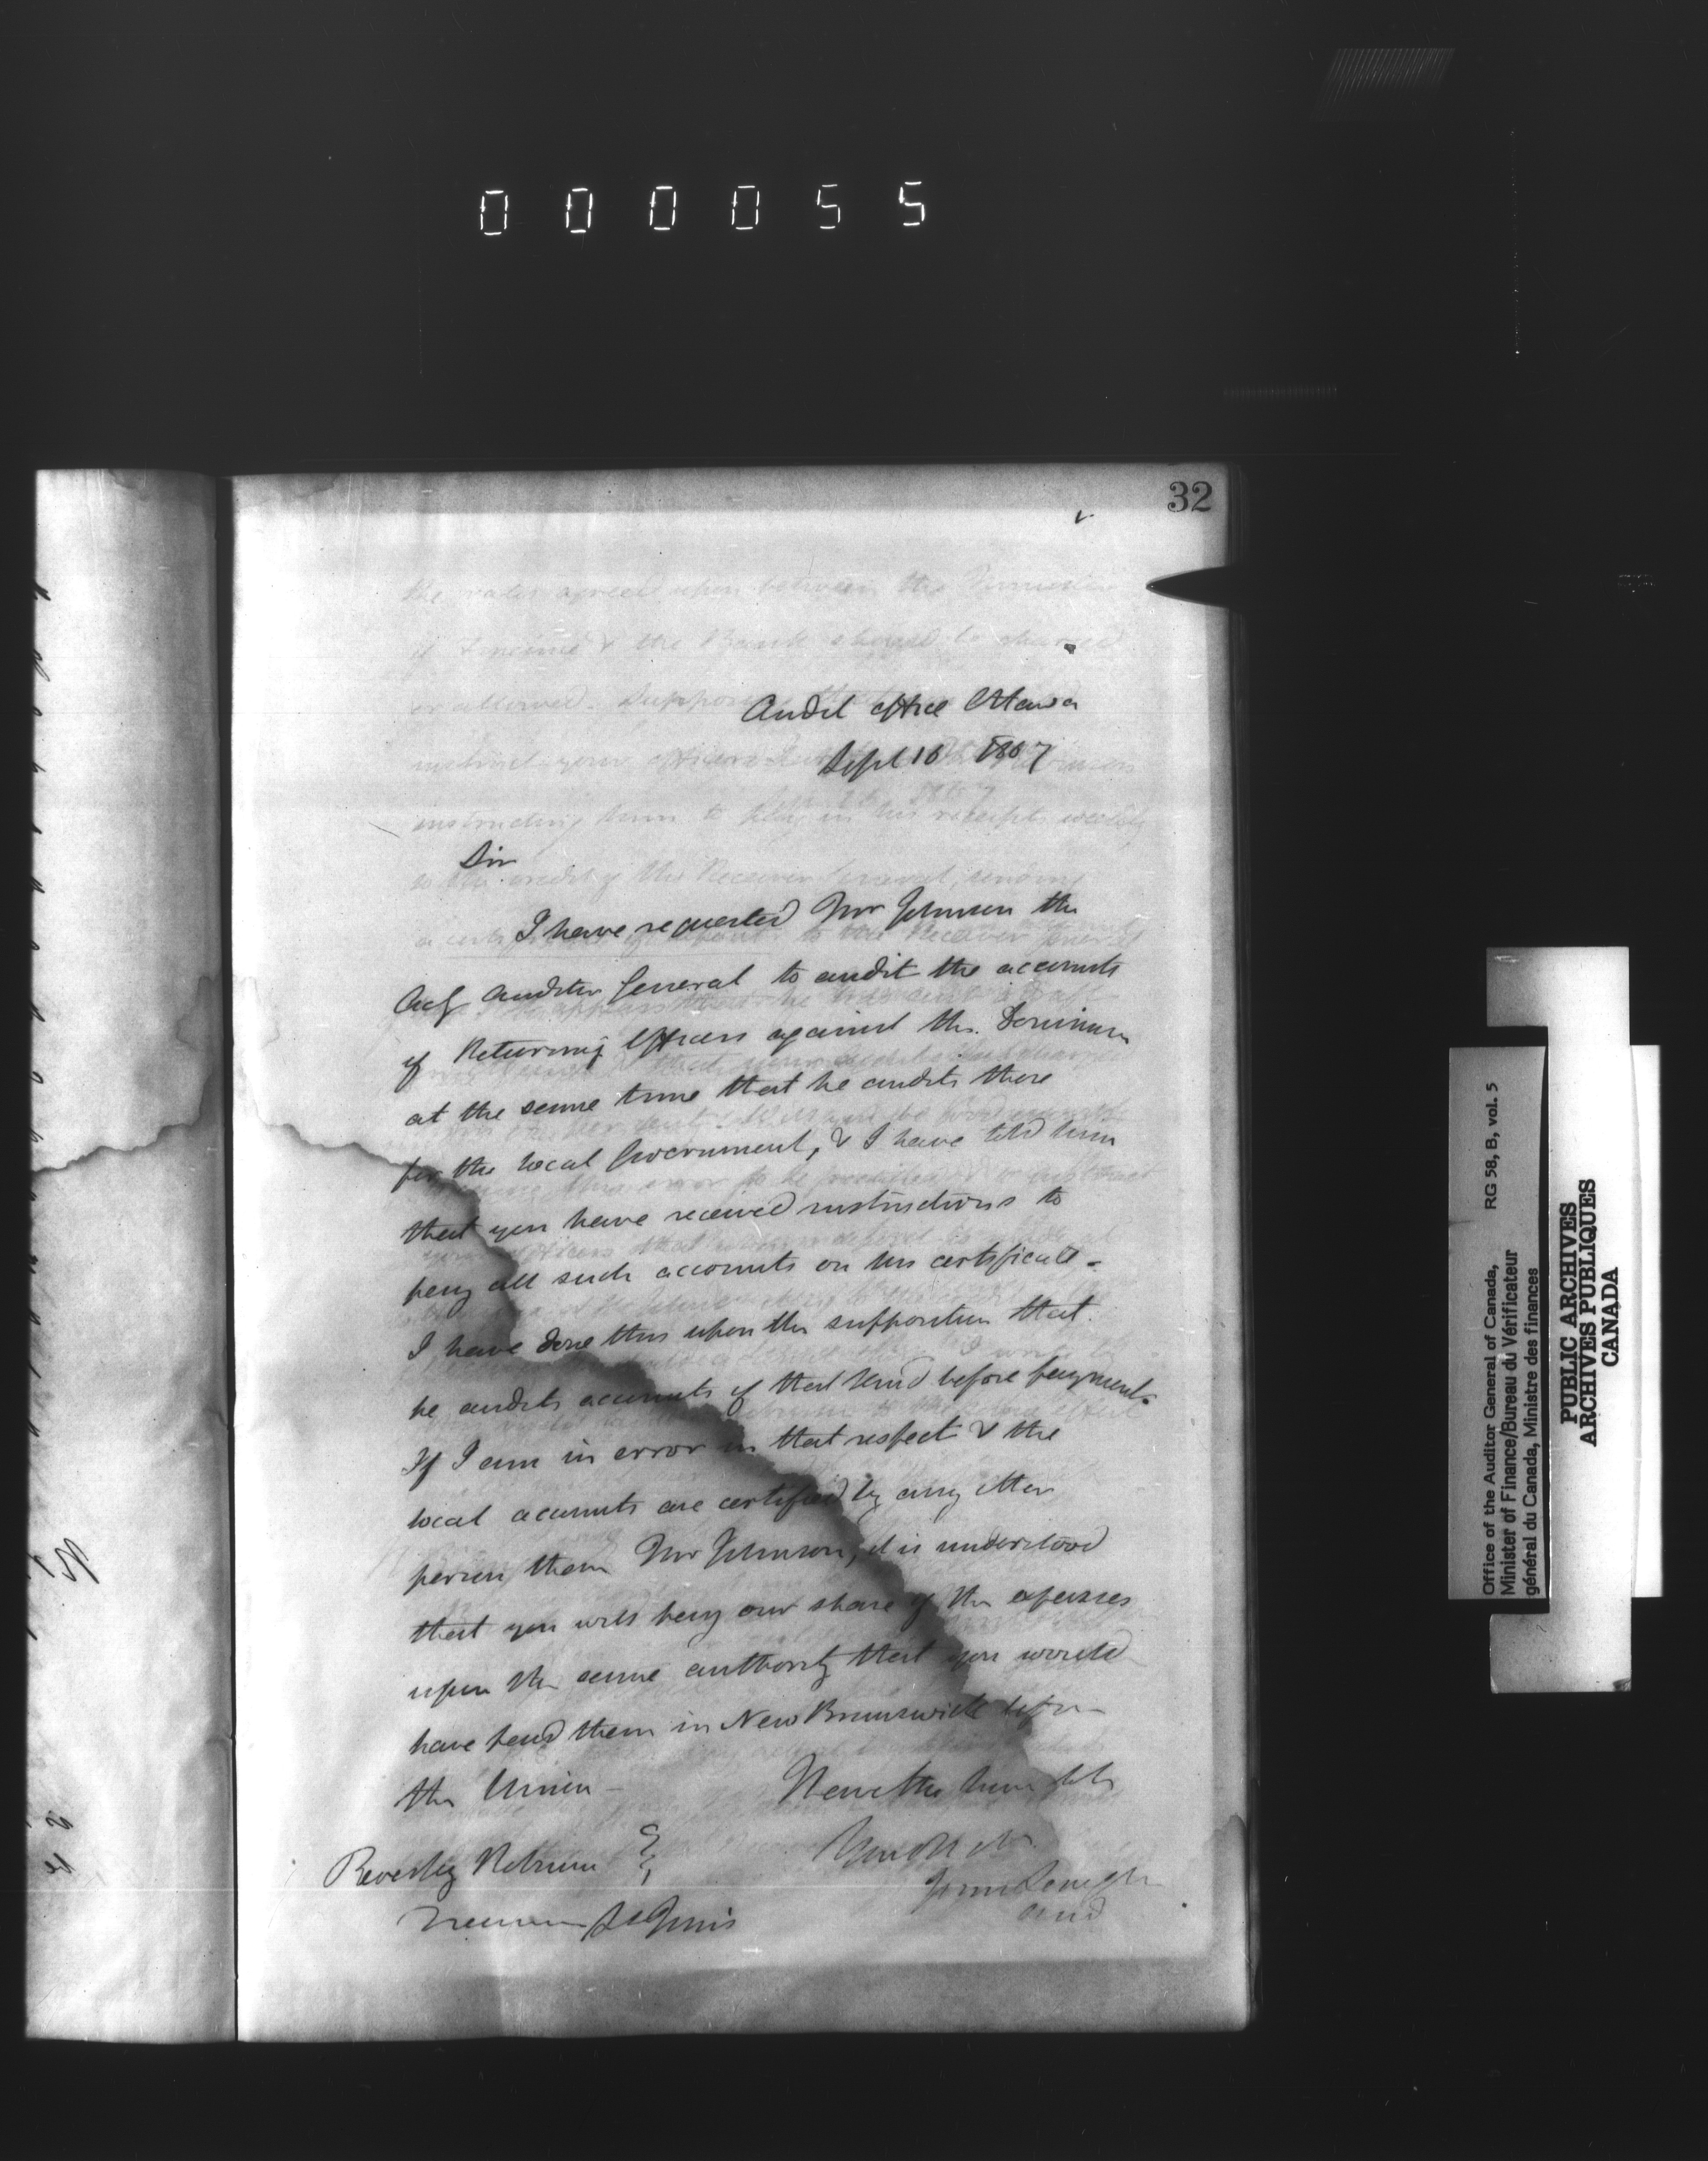 000055
32
Audit Office Ottawa
Sept 16 1867
Sir
I have requested Mr Johnson the
Actg Auditor General to audit the accounts
of Returning Officers against the Dominion
at the same time that he audits those
for the local Government, & I have told him
that you have received instructions to
pay all such accounts on his certificate -
I have done this upon the supposition that
he audits accounts of that kind before payment.
If I am in error in that respect & the
local accounts are certified by any other
person than Mr Johnson, it is understood
that you will pay our share of the expenses
upon the same authority that you would
have paid them in New Brunswick before
the Union -
I have the honor to be
Your Ob St
John Langton
Aud
Beverley Robinson
Treasurer St Johns
Office of the Auditor General of Canada,
Minister of Finance/Bureau du Vérificateur
général du Canada, Ministre des finances
RG 58, B, vol. 5
PUBLIC ARCHIVES
ARCHIVES PUBLIQUES
CANADA